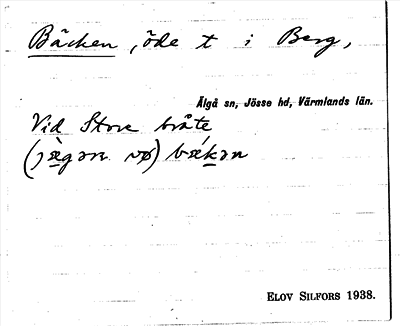 Bäcken, öde t i Berg,
Älgå sn, Jösse hd, Värmlands län.
Vid Store bråte
bǽkən
ELOV SILFORS 1938.